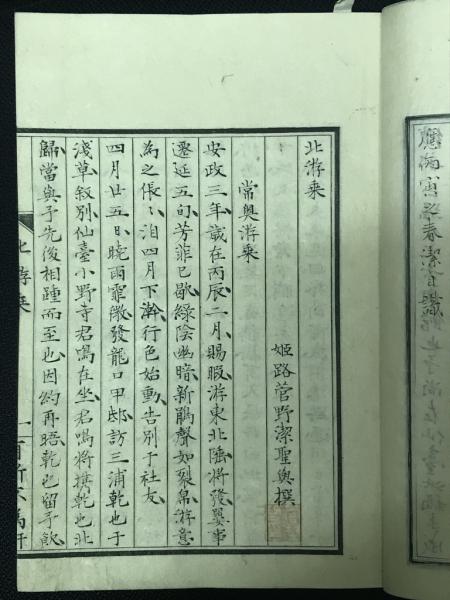 潔自識
北游乘
姬路菅野潔聖與撰
常奧游乘
安政三年歲在丙辰二月賜暇游東北陲將發嬰事
遷延五旬芳菲已歇綠陰幽暗新鵑聲如裂帛游意
為之倀〻洎四月下澣行色始動告別于社友
四月廿五日曉雨霏微發龍口甲邸訪三浦乾也于
淺草敘別仙臺小野寺君鳴在坐君鳴將攜乾也北
歸當與予先後相踵而至也因約再晤乾也留予飲
北游乘